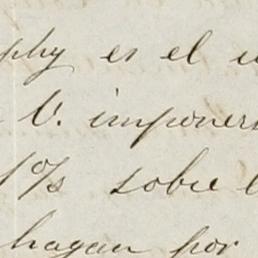 phy es el
V. imponer
1% sobre
hagan por